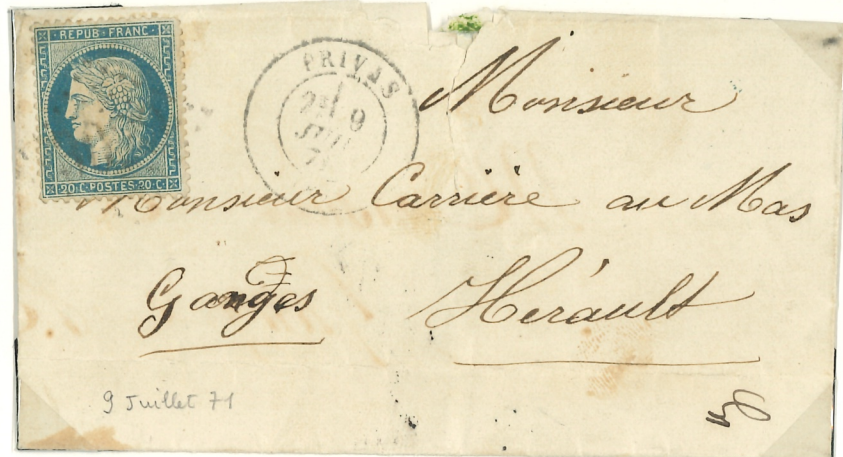 REPUB · FRANC
20 · C · POSTES · 20 · C
PRIVAS
9
Monsieur
Monsieur Carrière au Mas
Ganges Hérault
9 Juillet 71